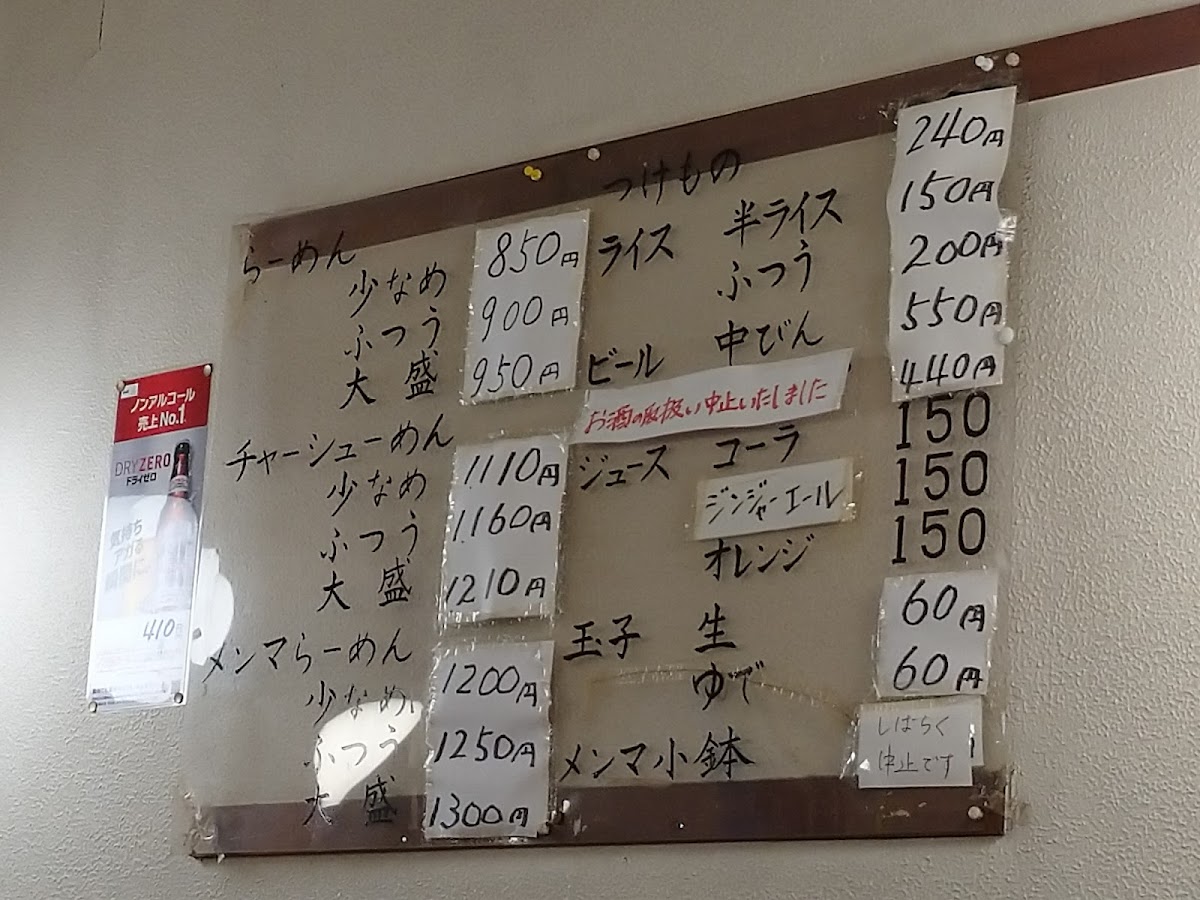 らーめん
少なめ 850円
ふつう 900円
大盛 950円
チャーシューめん
少なめ 1110円
ふつう 1160円
大盛 1210円
メンマらーめん
少なめ 1200円
ふつう 1250円
大盛 1300円
つけもの 240円
ライス 半ライス 150円
ふつう 200円
ビール 中びん 550円
440円
お酒の取扱い中止いたしました
ジュース コーラ 150
ジンジャーエール 150
オレンジ 150
玉子 生 60円
ゆで 60円
メンマ小鉢 しばらく
中止です
ノンアルコール
売上No.1
DRYZERO
ドライゼロ
気持ち
アガる
瞬間に
410円